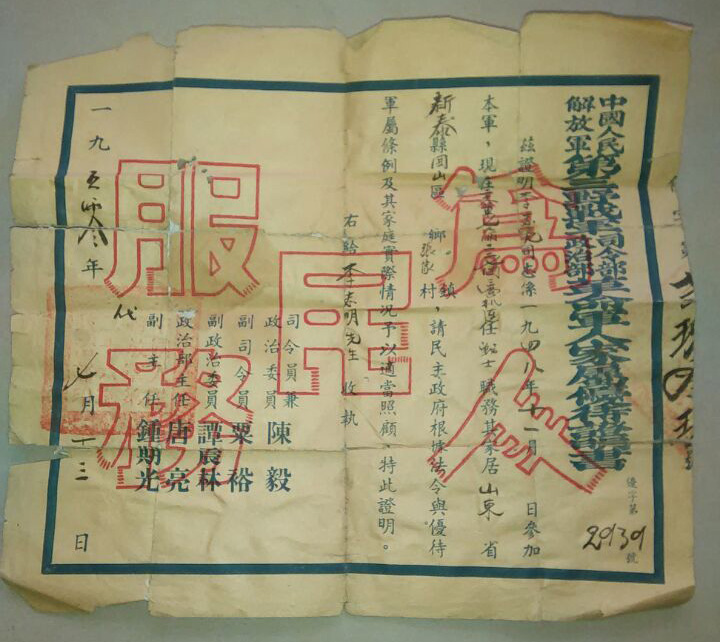 中國人民
解放軍
第三野戰軍
司令部
政治部
革命軍人家屬優待證明書
優字第
號
茲證明李 同志係一九四八年十一月 日參加
本軍,現在 任 士職務其家居山東省
新泰縣岡山區 鄉張家村鎮,請民主政府根據法令與優待
軍屬條例及其家庭實際情況予以適當照顧,特此證明。
右給李志明先生收執
司令員兼
政治委員 陳毅
副司令員 粟裕
副政治委員 譚震林
政治部主任 唐亮
副主任 鍾期光
代
一九五零年七月十三日
為人民服務